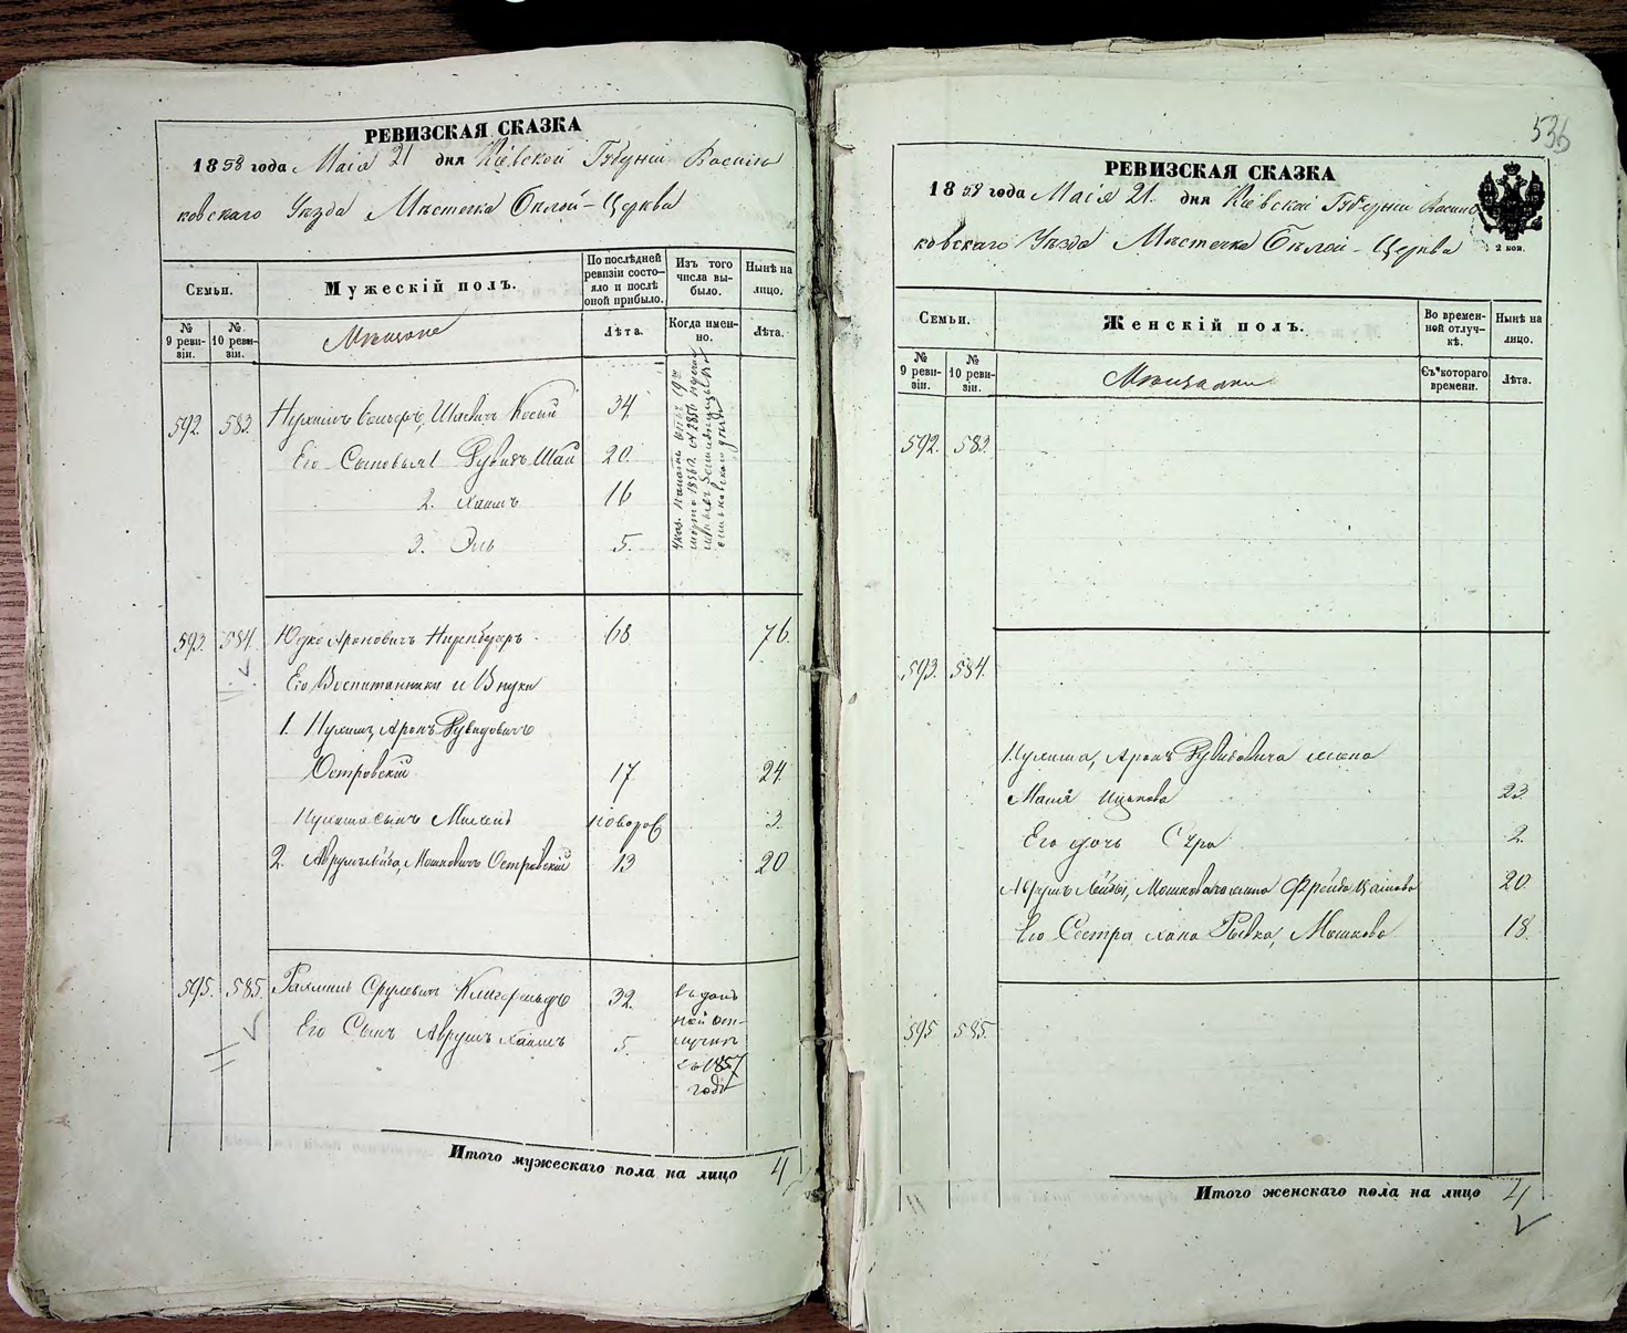 РЕВИЗСКАЯ СКАЗКА
1858 года Маія 21 дня Кіевской Губерніи Василь
ковскаго Уѣзда Мѣстечка Бѣлой-Церкви
Семьи.
Мужескій полъ.
По послѣдней ревизіи состояло и послѣ оной прибыло.
Изъ того числа выбыло.
Нынѣ на лицо.
№ 9 ревизіи.
№ 10 ревизіи.
Мѣщане
Лѣта.
Когда именно.
Лѣта.
592. 583. 34.
Его Сыновья 1 Рувинъ 20.
2. Хаимъ 16
3. Эль 5.
593. 584. Юдко Ароновичъ 68 76.
Его Воспитанники и Внуки
1. Нухимъ, Аронъ Рувидовичъ
Островскій 17 24.
Нухима сынъ новорож 3.
2. Аврумъ Лейба, Мошковичъ Островскій 13 20
595. 585. Рахмиль Срулевичъ 32.
Его Сынъ Аврумъ Хаимъ 5.
въ 1857
годѣ
Итого мужескаго пола на лицо 4
536
РЕВИЗСКАЯ СКАЗКА
1858 года Маія 21. дня Кіевской Губерніи Василь
ковскаго Уѣзда Мѣстечка Бѣлой-Церкви
2 коп.
Семьи.
Женскій полъ.
Во временной отлучкѣ.
Нынѣ на лицо.
№ 9 ревизіи.
№ 10 ревизіи.
Мѣщанки
Съ котораго времени.
Лѣта.
592. 583.
593. 584.
Нухима, Аронъ Рувидовича жена
Ицькова 23.
Его дочь Сура 2.
Аврумъ Лейбы, Мошковича жена Фрейда 20.
Его Сестра Хана Рывка, Мошкова 18.
595 585.
Итого женскаго пола на лицо 4